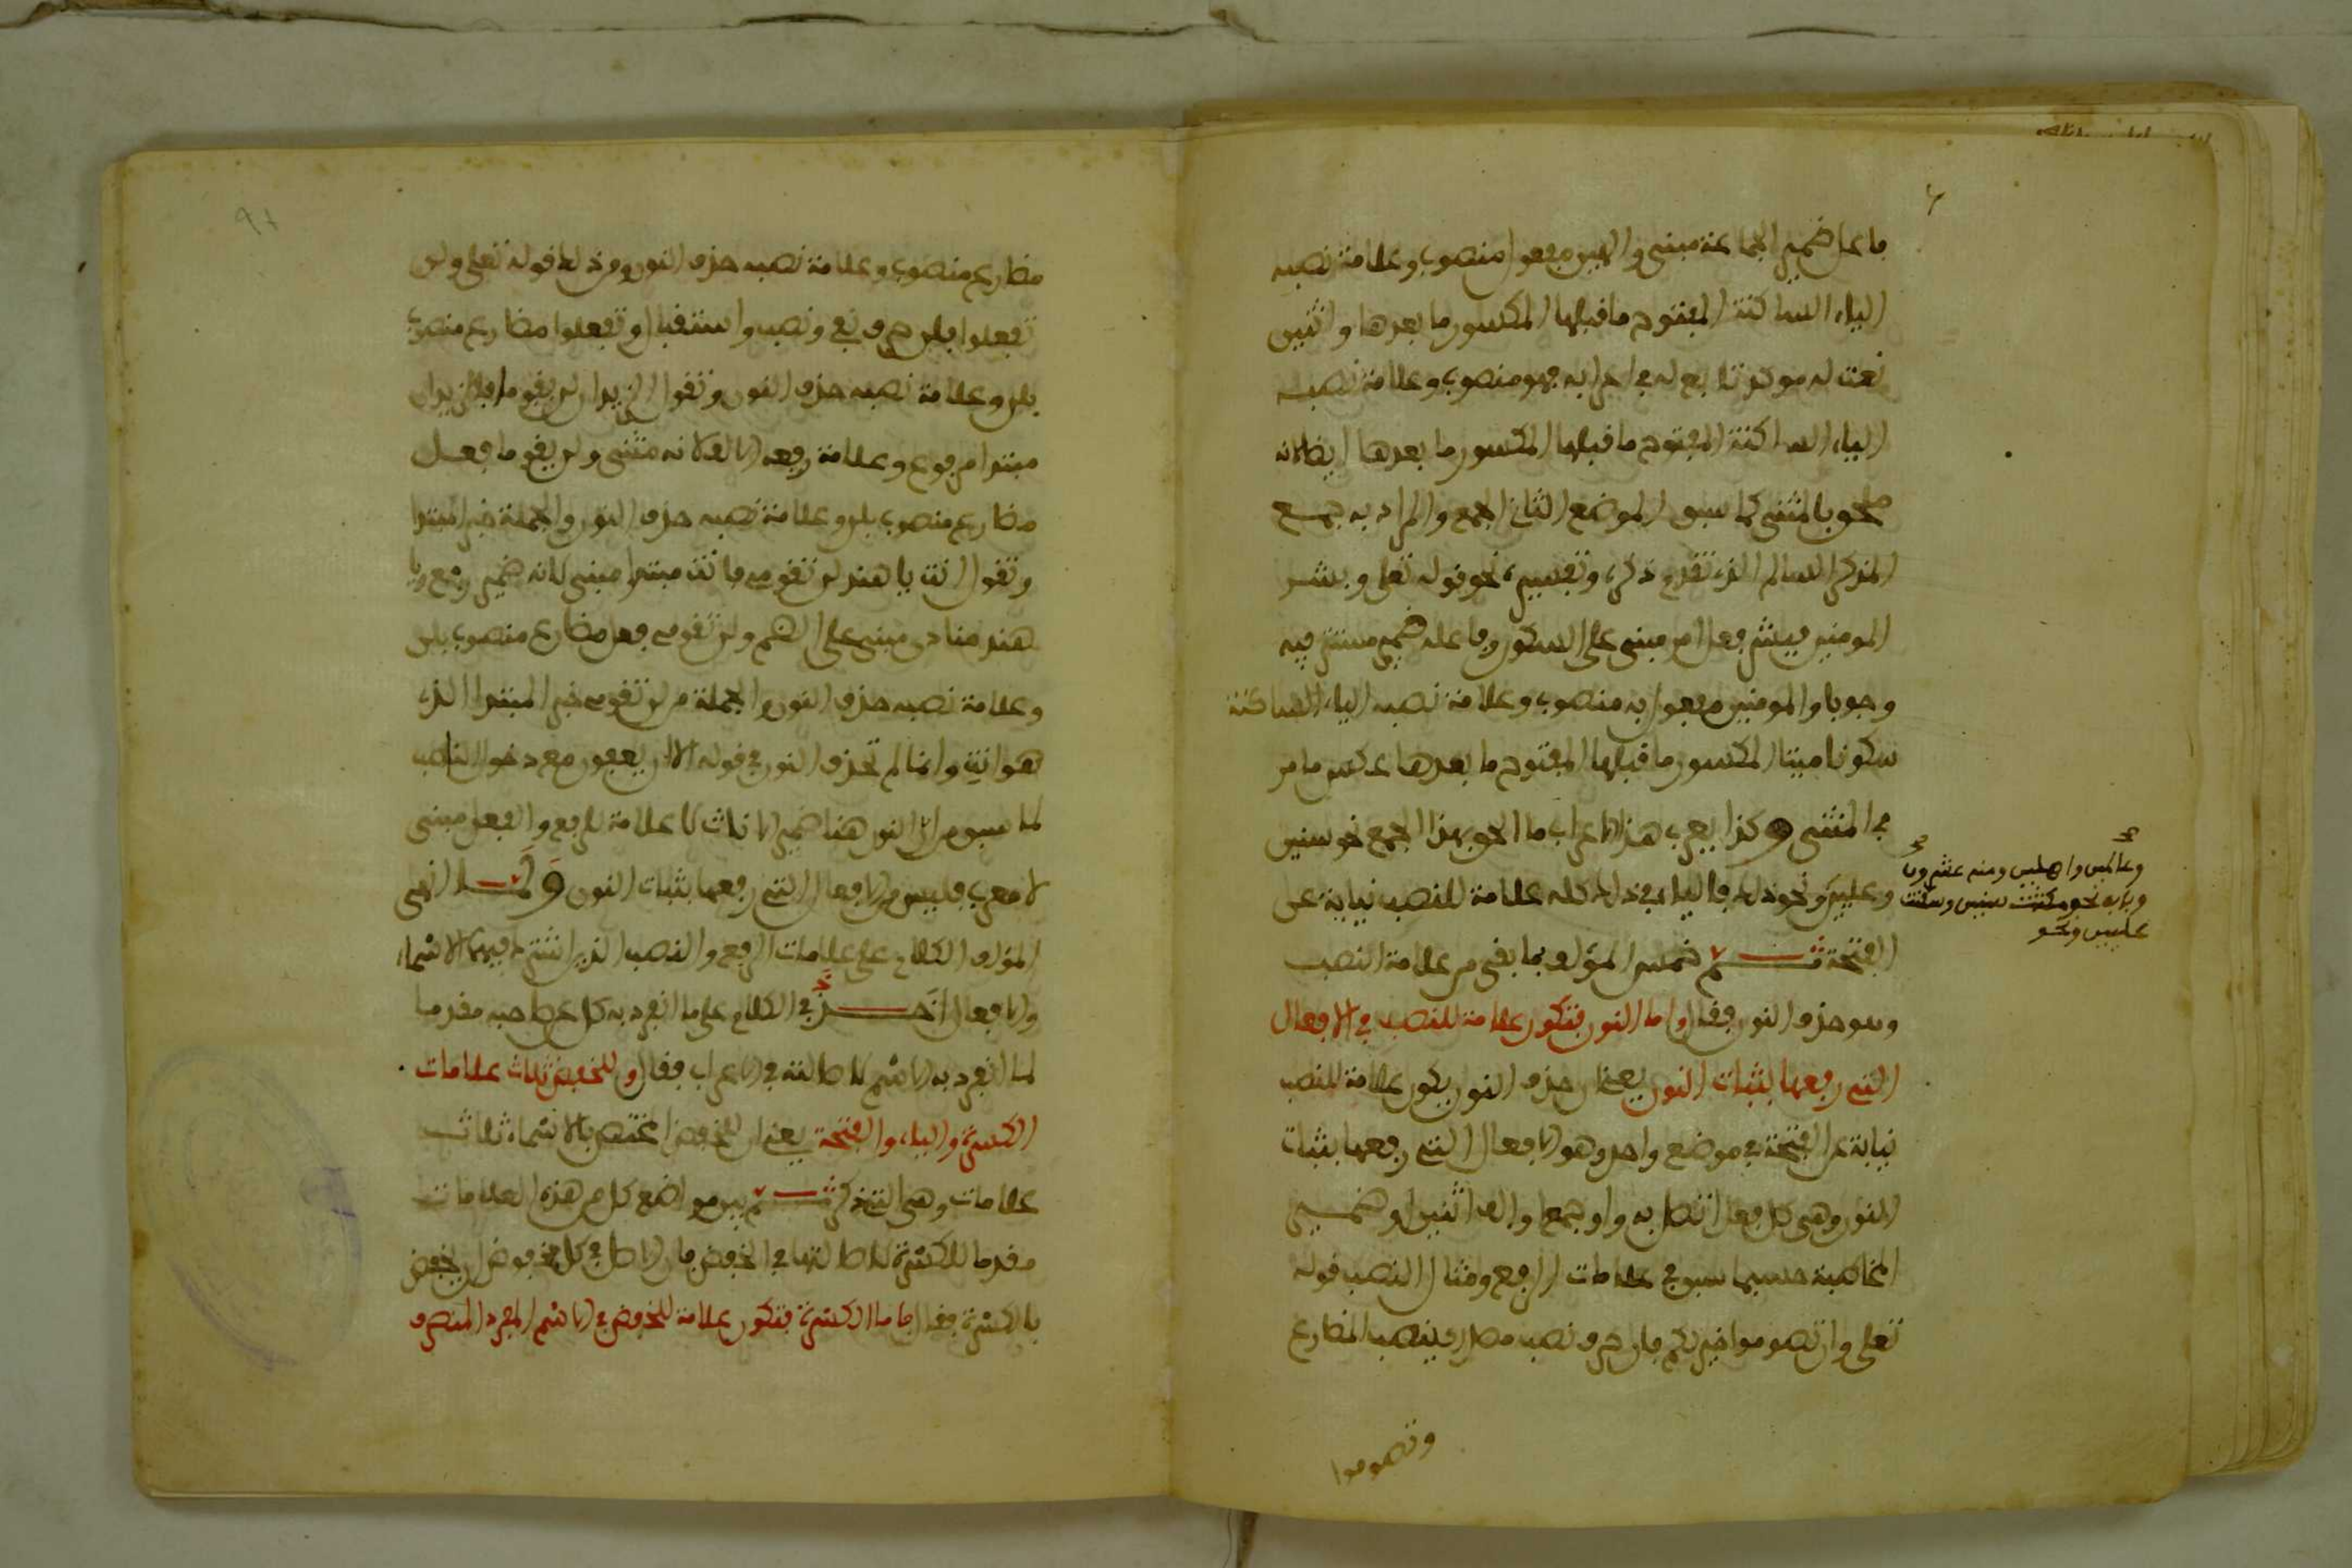 فاعل ضمير الجماعة مبني والهين مفعول منصوب وعلامة نصبه
الياء الساكنة المفتوح ما قبلها المكسور ما بعدها واثنين
نعت له موكد تابع له في اعرابه فهو منصوب وعلامة نصبه
الياء الساكنة المفتوح ما قبلها المكسور ما بعدها ايضا لانه
ملحق بالمثنى كما سبق الموضع الثاني الجمع والمراد به جمع
المذكر السالم الذي تقدم ذكره وتفسيره نحو قوله تعلى وبشر
المومنين فبشر فعل امر مبني على السكون وفاعله ضمير مستتر فيه
وجوبا والمومنين مفعول به منصوب وعلامة نصبه الياء الساكنة
سكونا ميتا المكسور ما قبلها المفتوح ما بعدها عكس ما مر
في المثنى وكذا يعرب هذا الاعراب ما الحق بهذا الجمع نحو سنين
وعليين ونحو ذلك فالياء في ذلك كله علامة للنصب نيابة عن
الفتحة ثم تمم المؤلف بما بقي من علامة النصب
وهو حذف النون فقال واما النون فتكون علامة للنصب في الافعال
التي رفعها بثبات النون يعني ان حذف النون يكون علامة للنصب
نيابة عن الفتحة في موضع واحد وهو الافعال التي رفعها بثبات
النون وهي كل فعل اتصل به واو جمع او الف اثنين او ضمير
المخاطبة حسبما سبق في علامات الرفع ومثال النصب قوله
تعلى وان تصوموا خير لكم فان حرف نصب مصدر ينصب المضارع
وتصوموا
وعالمين واهلين ومنه عشرون
وبابه نحو مكثت سنين وسكنت
عليين ونحو
مضارع منصوب وعلامة نصبه حذف النون ومن ذلك قوله تعلى ولن
تفعلوا فلن حرف نفي ونصب واستقبال وتفعلوا مضارع منصوب
بلن وعلامة نصبه حذف النون وتقول الزيدان لن يقوما فالزيدان
مبتدا مرفوع وعلامة رفعه الالف لانه مثنى ولن يقوما فعل
مضارع منصوب بلن وعلامة نصبه حذف النون والجملة خبر المبتدا
وتقول انت يا هند لن تقومي فانت مبتدا مبني لانه ضمير رفع ويا
هند منادى مبني على الضم ولن تقومي فعل مضارع منصوب بلن
وعلامة نصبه حذف النون والجملة من لن تقومي خبر المبتدا الذي
هو انت وانما لم تحذف النون في قوله الا ان يعفون مع دخول الناصب
لما سبق من ان النون هنا ضمير الاناث لا علامة للرفع والفعل مبني
لا معرب فليس من الافعال التي رفعها بثبات النون ولما انهى
المؤلف الكلام على علامات الرفع والنصب الذين اشترك فيهما الاسماء
والافعال اخذ في الكلام على ما انفرد به كل عن صاحبه مقدما
لما انفرد به الاسم لاصالته في الاعراب فقال وللخفض ثلاث علامات
الكسرة والياء والفتحة يعني ان للخفض المختص بالاسماء ثلاث
علامات وهي التي ذكر ثم بين مواضع كل من هذه العلامات
مقدما للكسرة لاصالتها في الخفض فان الاصل في كل مخفوض ان يخفض
بالكسرة فقال فاما الكسرة فتكون علامة للخفض في الاسم المفرد المنصرف